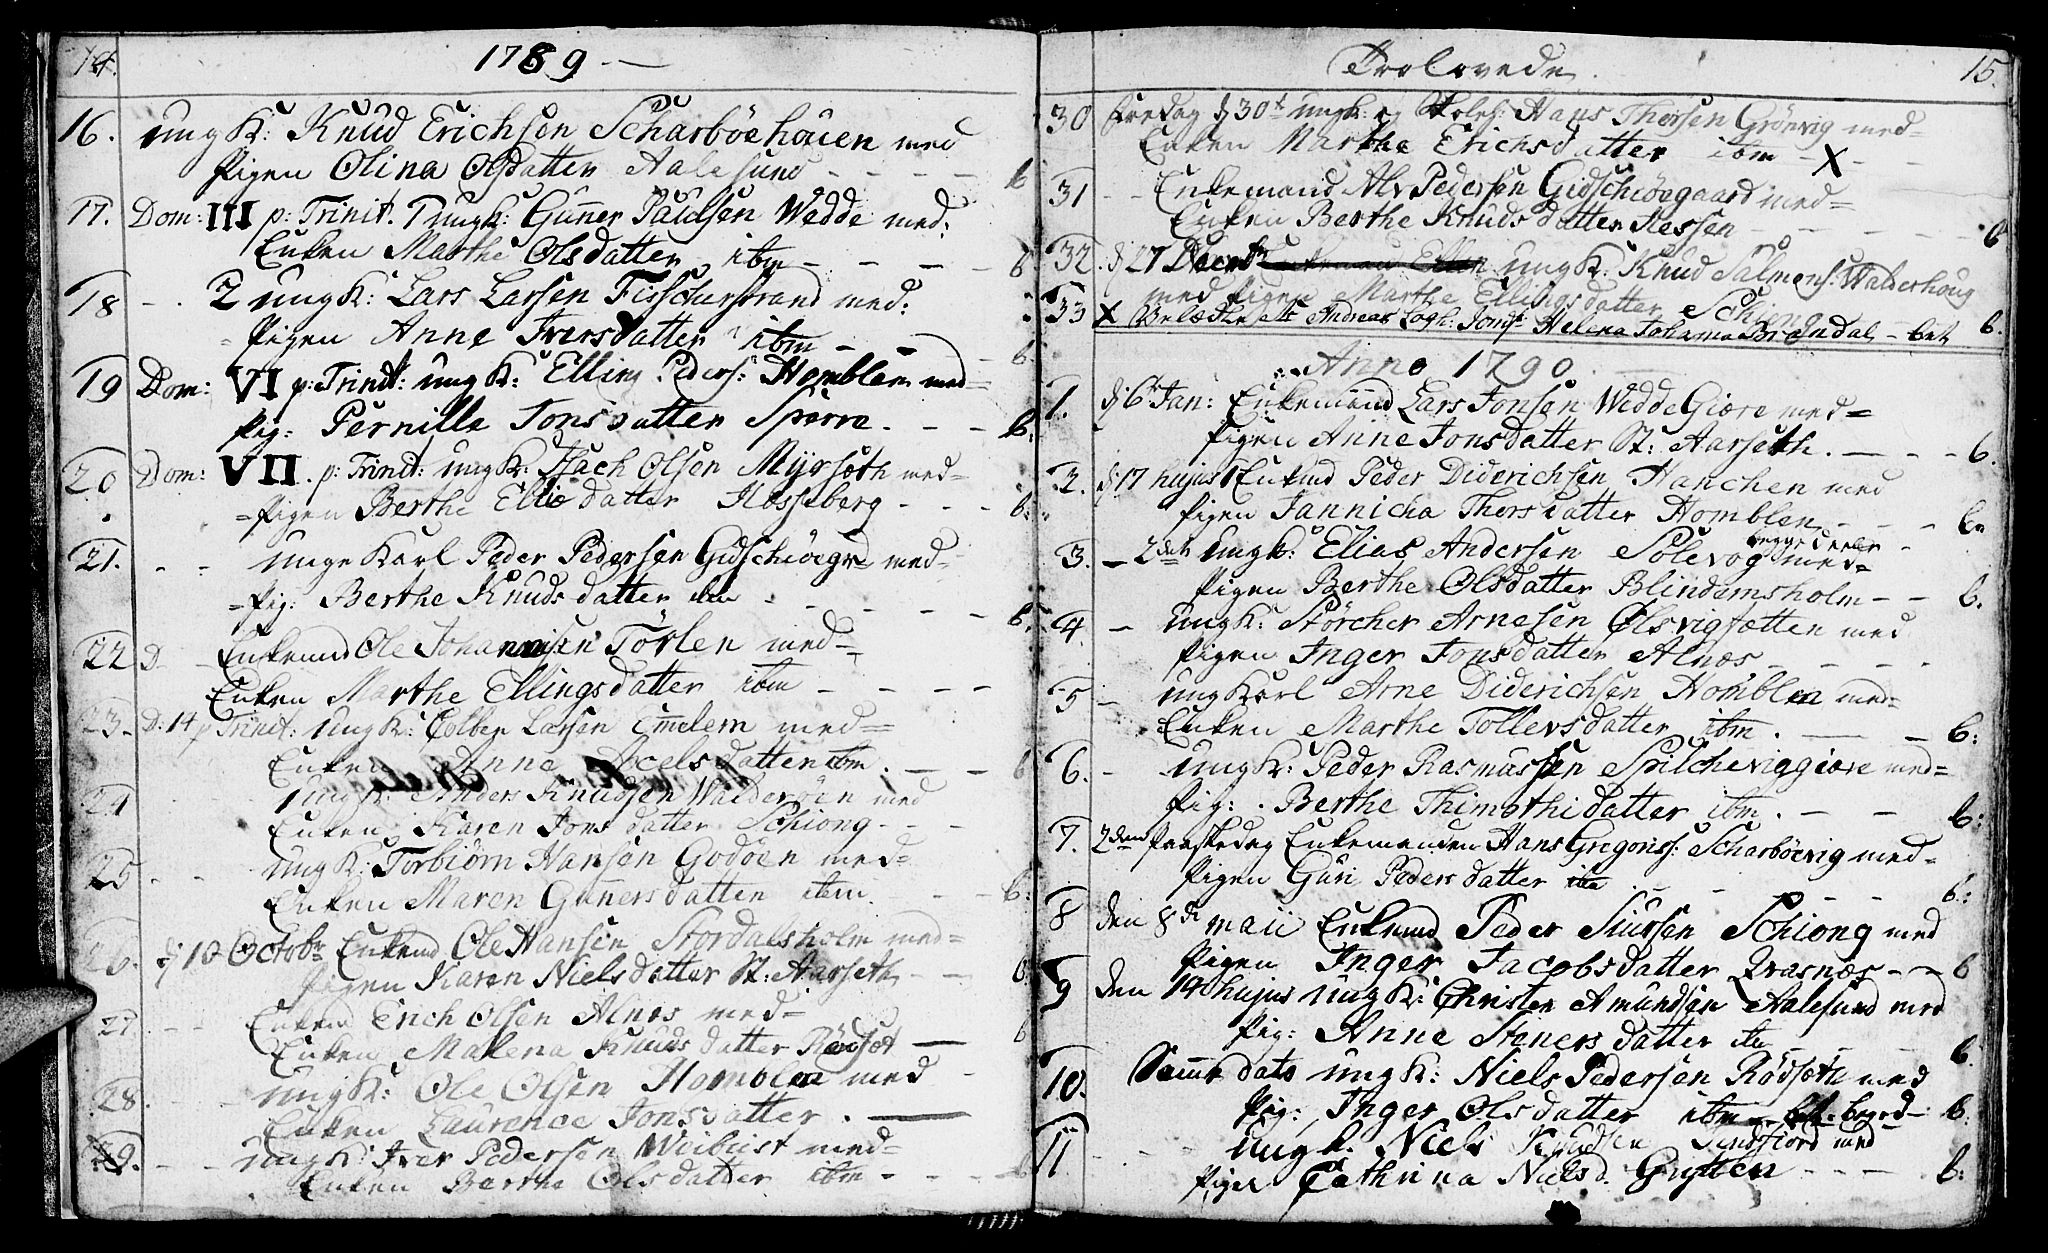 14.
1789 —
16. ungk: Knud Erichsen Scharböehouen med
Pigen Olina Olsdatter Aalesund - - - - b
17. Dom: III p: Trinit. 1 ungk: Guner Paulsen Wedde med:
Enken Marthe Olsdatter ibm - - - - b
18 - . 2 ungk: Lars Larsen Fisscherstrand med:
Pigen Anne Iversdatter ibm - - - b
19 Dom: VI p: Trinit: ungk: Elling Peders: Homblen med=
Pig: Pernille Jonsdatter Sperre. - - b.
20 Dom: VII p: Trinit: ungk: Isach Olsen Myrsæth med=
=Pigen Berthe datter Hesseberg - - - b:
21. - - unge Karl Peder Pedersen Gidschöegr= med=
=Pig: Berthe Knudsdatter - - - - - b.
22 D. Enkemd Ole Johannisen Törlen med=
Enken Marthe Ellingsdatter ibm - - - -
23. D: 14 p Trinit: ungk: Colben Larsen Emelem med=
Enken Anne Axelsdatter ibm. - - b
24 ungk: Anders Knudsen Walderöen med
Enken Karen Jonsdatter Schiong - - -
25 - - ungk: Torbiörn Hansen Godöen med=
Enken Maren Gunersdatter ibm. - - - b:
26. d 10 Octobr Enkemd Ole Hansen Stordalsholm med=
Pigen Karen Nielsdatter St: Aarseth - - b
27 - - Enkemd Erich Olsen Alnes med=
Enken Malena Knudsdatter Rödset — b
28. ungk: Ole Olsen Homblen med -
Enken Laurence Jonsdatter . —
29. - - ungk: Iver Pedersen Weibust med=
Enken Berthe Olsdatter ibm - - - b
Trolovede.
15.
30 Fredag d 30t ungk: og Hans Thorsen Grönvig med=
Enken Marthe Erichsdatter ibm - X - -
31 - - Enkemand Alv Pedersen Gidschöegaard med=
Enken Berthe Knudsdatter Nessen - - - - b
32. d 27 Decebr ungk: Knud Salmons: Walderhoug
med Pigen Marthe Ellingsdatter
33 X Andreas Jomf: Helena Johanna - bet b.
Anno 1790
1. d 6t Jan: Enkemand Lars Jonsen Wedde Giære med=
Pigen Anne Jonsdatter St: Aarseth. - - - b.
2. d 17 hujus 1 Enkemd Peder Diderichsen Hanchen med
Pigen Jannicha Thorsdatter Homblen - - - b.
3. - 2det ungk: Elias Andersen Solevog med=
Pigen Berthe Olsdatter Blindemsholm - - b.
4 - ungk: Störcher Arnesen Ølsvigsætten med
Pigen Inger Jonsdatter Alnæs - - - .
5 - ung Karl Arne Diderichsen Homblen med=
Enken Marthe Tollevsdatter ibm. — - b:
6. - ungk: Peder Rasmussen Spilcheviggiære med=
Pig: . Berthe Thimothidatter ibm. - - b:
7. 2den Paaskedag Enkemanden Hans Gregoriss: Scharböevig med=
Pigen Guri Pedersdatter - - - b:
8 den 8de maii Enkemd Peder Siursen Schiong med
Pigen Inger Jacobsdatter Qvasnæs - - b
9 den 14 hujus ungk: Christen Amundsen Aalesund med
Pig: Anne Stenersdatter - - - - b.
10. Samme dato ungk: Niels Pedersen Rödsæth med
Pig: Inger Olsdatter ibm b.
11 - - - ungk. Niels Knudsen Sundfiord med
Pigen Cathrina Nielsd. Grytten - - - b: